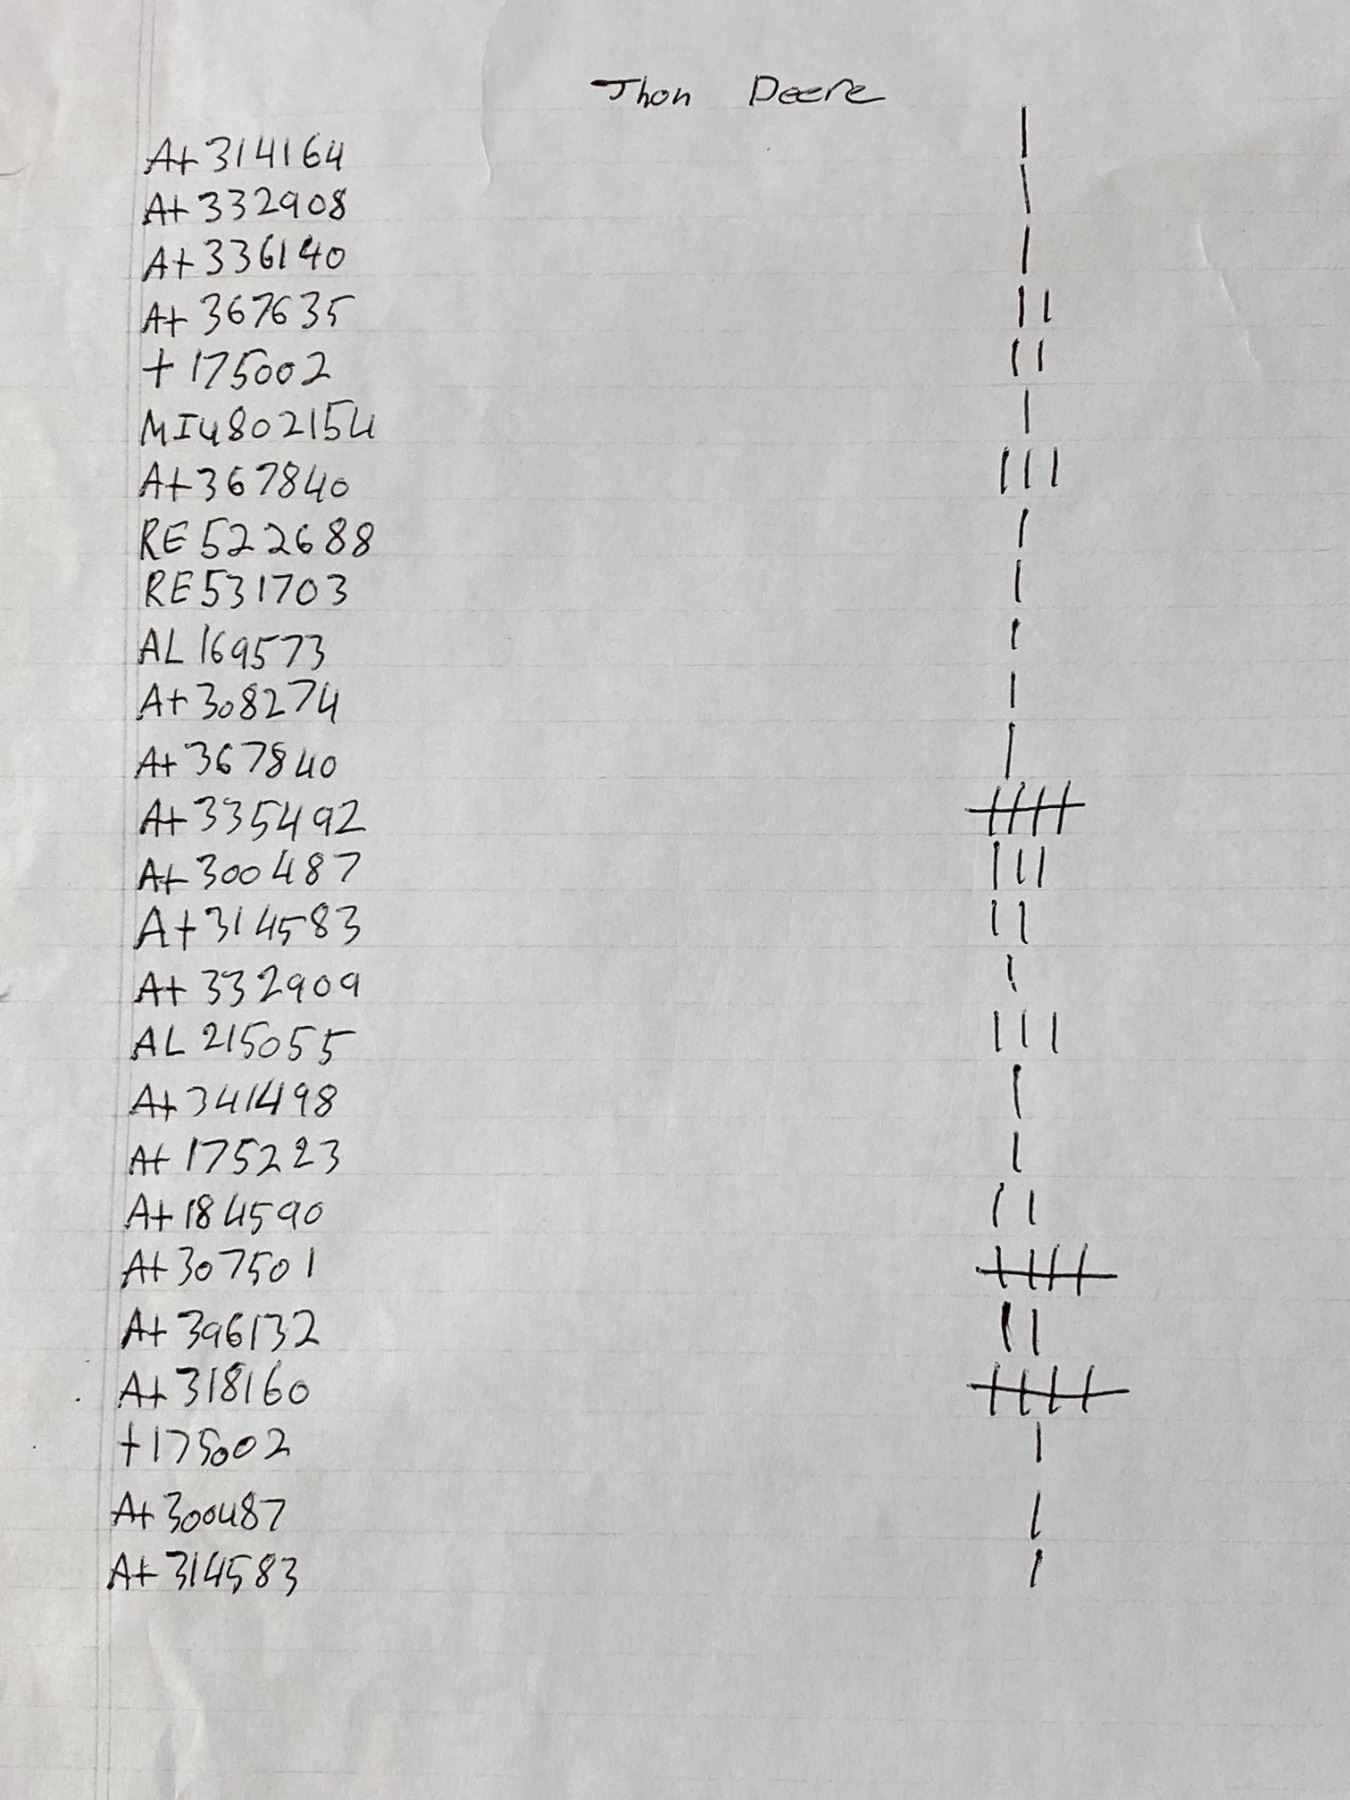 Jhon Deere
At 314164 |
At 332908 |
At 336140 |
At 367635 ||
t 175002 ||
MIU802154 |
At 367840 |||
RE 522688 |
RE 531703 |
AL 169573 |
At 308274 |
At 367840 |
At 335492 ~~||||~~
At 300487 |||
At 314583 ||
At 332909 |
AL 215055 |||
At 341498 |
At 175223 |
At 184590 ||
At 307501 ~~||||~~
At 396132 ||
At 318160 ~~||||~~
t 175002 |
At 300487 |
At 314583 |